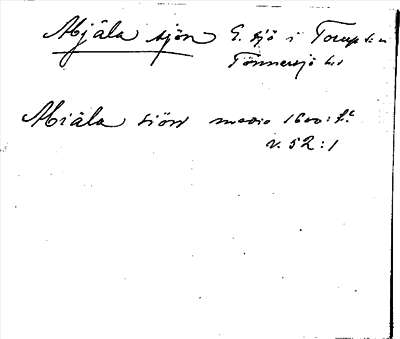 Mjäla sjön G. sjö i Torup s:n
Tönnersjö hd
Miäla siön medio 1600:t.
v. 52:1